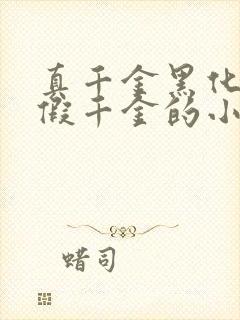 真千金黑化
假千金的小
蜡司